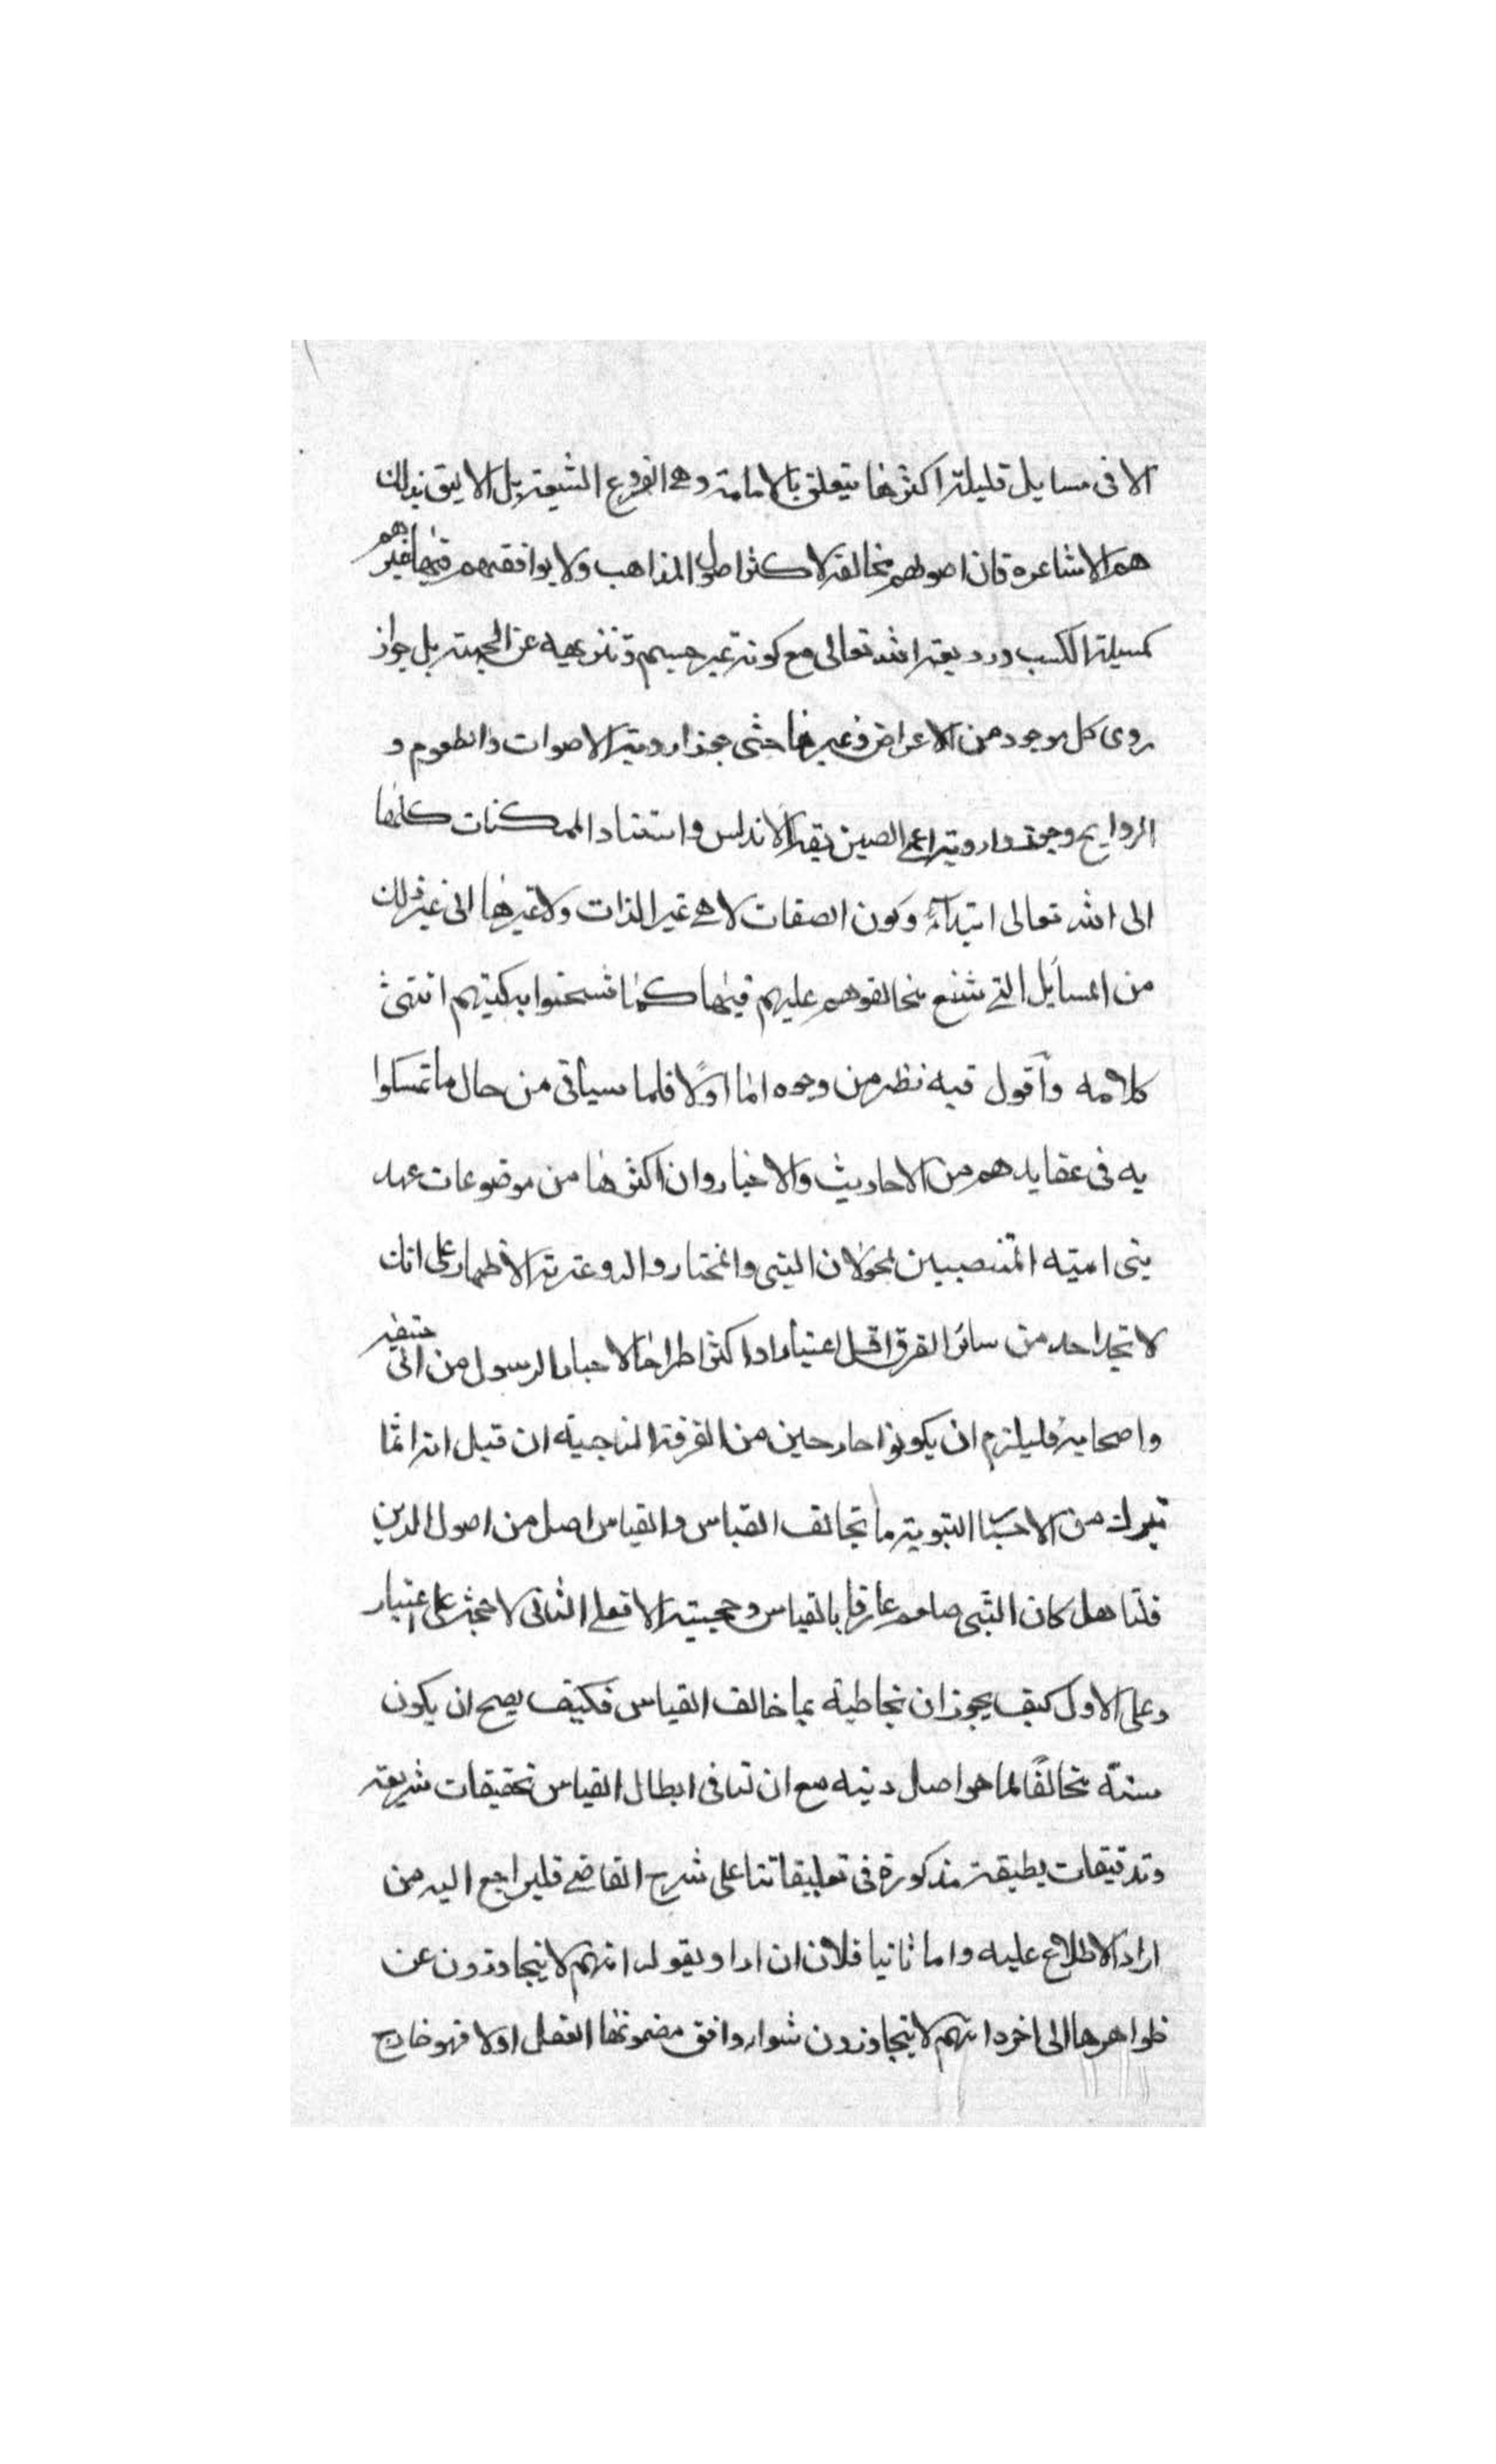 الا فى مسايل قليلة اكثرها يتعلق بالامامة وهى الفروع الشيعة بل الاليق بذلك
هم الاشاعرة فان اصولهم مخالفة لاكثر اصول المذاهب ولا يوافقهم فيها غيرهم
كمسيلة الكسب ورويته الله تعالى مع كونه غير جسم وتنزيهيه عن الجهة بل جواز
روى كل موجود من الاعراض وغيرها حتى جوزا روية الاصوات والطعوم و
الروايح وجوزوا روية اعمى الصين بقة الاندلس واستناد الممكنات كلها
الى الله تعالى ابتداء وكون الصفات لا هى غير الذات ولا غيرها الى غير ذلك
من المسايل التى شنع مخالفوهم عليهم فيها كما شحنوا به كتبهم انتهى
كلامه واقول فيه نظر من وجوه اما اولا فلما سيأتى من حال ما تمسكوا
به فى عقايدهم من الاحاديث والاخبار وان اكثرها من موضوعات عهد
بنى اميه المتنصبين لعدوان النبى والمختار واله وعترته الاطهار على انك
لا تجد احد من سائر الفرق اقل اعتبارا واكثر اطراحا لاخبار الرسول من ابى حنيفه
واصحابه فليلزم ان يكونوا خارجين من الفرقة الناجيه ان قيل انه انما
تيرك من الاخبار النبوية ما تخالف القياس والقياس اصل من اصول الدين
قلنا هل كان النبى صلعم عارفا بالقياس وحجيته الا فعلى الثانى لا حجة على اعتبار
وعلى الاول كيف يجوز ان يخاطبه بما خالف القياس فكيف يصح ان يكون
سنته مخالفًا لما هو اصل دينه مع ان لنا فى ابطال القياس تحقيقات شريفه
وتدقيقات لطيفة مذكورة فى تعليقاتنا على شرح القاضى فليراجع اليه من
اراد الاطلاع عليه واما ثانيا فلان ان اراد ويقوله انهم لا يتجاوزون عن
ظواهرها الى اخره انهم لا يتجاوزون سواء وافق مضمونها العقل اولا فهو خارج